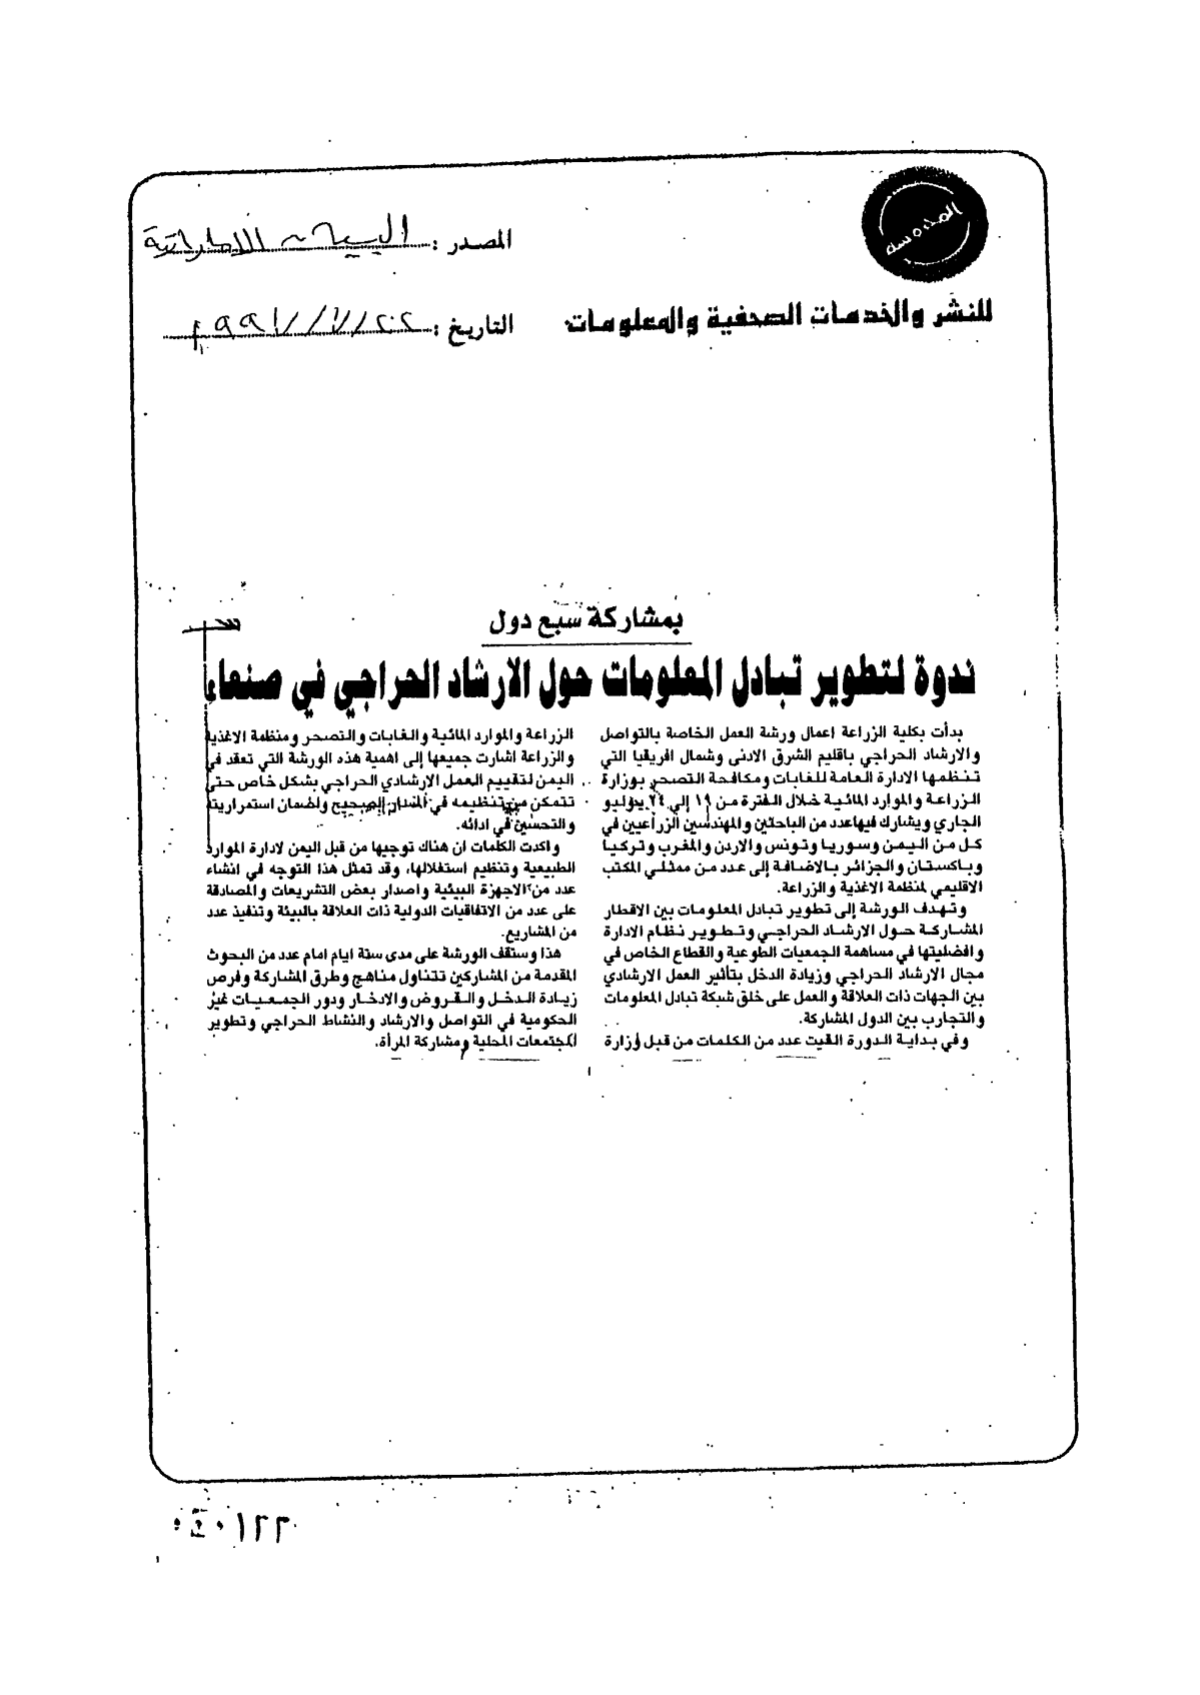 المدوسه
المصدر : البيان الاماراتية
للنشر والخدمات الصحفية والمعلومات
التاريخ :
بمشاركة سبع دول
ندوة لتطوير تبادل المعلومات حول الارشاد الحراجي في صنعاء
بدأت بكلية الزراعة اعمال ورشة العمل الخاصة بالتواصل
والارشاد الحراجي باقليم الشرق الادنى وشمال افريقيا التي
تنظمها الادارة العامة للغابات ومكافحة التصحر بوزارة
الزراعة والموارد المائية خلال الفترة من ١٩ إلى ٢٤ يوليو
الجاري ويشارك فيها عدد من الباحثين والمهندسين الزراعيين في
كل من اليمن وسوريا وتونس والاردن والمغرب وتركيا
وباكستان والجزائر بالاضافة إلى عدد من ممثلي المكتب
الاقليمي لمنظمة الاغذية والزراعة.
وتهدف الورشة إلى تطوير تبادل المعلومات بين الاقطار
المشاركة حول الارشاد الحراجي وتطوير نظام الادارة
وافضليتها في مساهمة الجمعيات الطوعية والقطاع الخاص في
مجال الارشاد الحراجي وزيادة الدخل بتأثير العمل الارشادي
بين الجهات ذات العلاقة والعمل على خلق شبكة تبادل المعلومات
والتجارب بين الدول المشاركة.
وفي بداية الدورة القيت عدد من الكلمات من قبل وزارة
الزراعة والموارد المائية والغابات والتصحر ومنظمة الاغذية
والزراعة اشارت جميعها إلى اهمية هذه الورشة التي تعقد في
اليمن لتقييم العمل الارشادي الحراجي بشكل خاص حتى
تتمكن من تنظيمه في المسار الصحيح ولضمان استمراريته
والتحسين في ادائه.
واكدت الكلمات ان هناك توجيها من قبل اليمن لادارة الموارد
الطبيعية وتنظيم استغلالها، وقد تمثل هذا التوجه في انشاء
عدد من الاجهزة البيئية واصدار بعض التشريعات والمصادقة
على عدد من الاتفاقيات الدولية ذات العلاقة بالبيئة وتنفيذ عدد
من المشاريع.
هذا وستقف الورشة على مدى ستة ايام امام عدد من البحوث
المقدمة من المشاركين تتناول مناهج وطرق المشاركة وفرص
زيادة الدخل والقروض والادخار ودور الجمعيات غير
الحكومية في التواصل والارشاد والنشاط الحراجي وتطوير
المجتمعات المحلية ومشاركة المرأة.